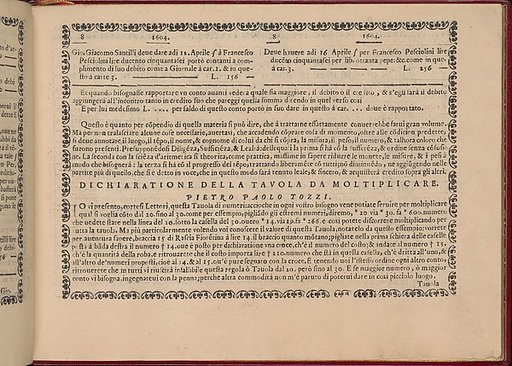 8 1604. 8 1604.
Gio. Giacomo Santilli deue dare adi 12. Aprile ʃ à Francesco
Pesciolini lire ducento cinquantasei portò contanti a com-
plimento di suo debito come a Giornale à car. 1. & in que-
sto a carte 3. L. 256
Deue hauere adi 16 Aprile ʃ per Francesco Pesciolini lire
ducento cinquantasei per lib. ottanta pepe: & come in que-
à car. 3. L. 256
Et quando bisognasse rapportare vn conto auanti vedera quale sia maggiore, il debito ò il credito, & s'egli sarà il debito
aggiungerà all'incontro tanto in credito sin che pareggi quella somma dicendo in quel verso così
E per lui medesimo L. per saldo di questo conto portò in suo dare in questo à car. doue è rapportato.
Questo è quanto per cõpendio di questa materia si può dire, che à trattarne essattamente conuerrebbe farui gran volume.
Ma per non tralasciare alcune cose necessarie, auertasi, che accadendo cõprare cosa di momento, oltre alle cõditioni predette,
si deue annotare; il luogo, il tẽpo, il nome, & cognome di colui da chi si cõpra, la misura, il peso, il numero, & talhora coloro che
furono presenti. Presuponendosi Diligẽza, Sufficiẽza, & Lealtà
La seconda con la sciẽza d'aritmetica sì theorica, come prattica, massime in sapere ridurre le monete, le misure, & i pesi à
modo che bisognerà: la terza si hà cõ il progresso del
partite più di quello, che si è detto in voce, che in questo modo sarà tenuto leale, & sincero, & acquisterà credito sopra gli altri.
DICHIARATIONE DELLA TAVOLA DA MOLTIPLICARE.
PIETRO PAOLO TOZZI.
O vi presento, cortesi Lettori, questa Tauola di numeri: acciochè in ogni vostro bisogno vene potiate seruire per moltiplicare
qual si voglia cosa dal 20. sino al 30. come per essempio, pigliato gli estremi numeri, diremo, " 20 via " 30. fa " 600. numero
che vedete stare nella linea del 20. sotto la casella del 30. ouero " 14. via 19. fa " 266. e così potete discorrere moltiplicando per
tutta la tauola. Ma più particolarmente volendo voi conoscere il valore di questa Tauola, notatelo da questo essempio: vorrete
per auentura sapere, braccia 15 di Rascia Fiorẽtina à lire 14. il braccio quanto mõtano: pigliate nella prima schiera delle caselle
posta à banda destra il numero † 14. oue è posto per dichiaratione vna croce, ch'è il numero del costo; & andate al numero † 15.
ch'è la quantità della roba. e ritrouarete che il costo importa lire † 210. numero che stà in quella casella, ch'è dritta all'vno, &
all'altro de' numeri
ritrouerete che in tutti vi riuscirà infallibile questa regola ò Tauola dal 20. però sino al 30. E se maggior numero, ò maggior
conto vi bisogna, ingegnateui con la penna; perche altra commodità non m'è paruto di poterui dare in così picciolo luogo.
Tauola